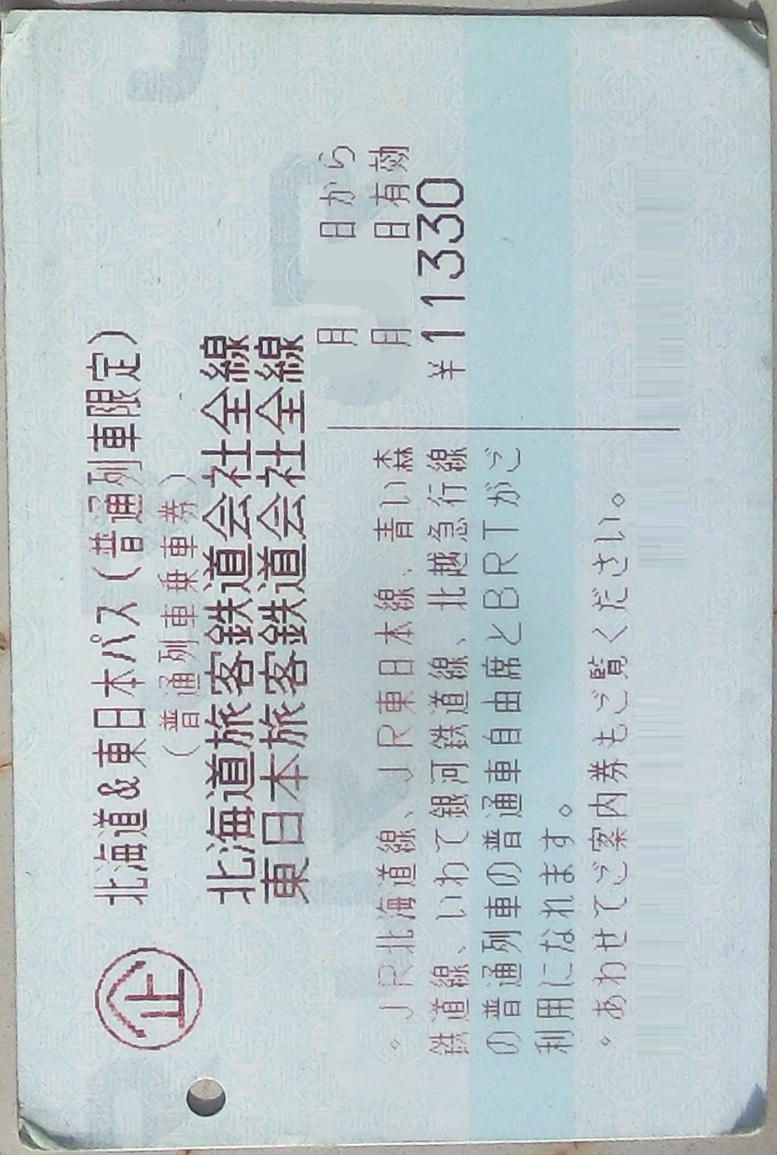 企
北海道&東日本パス(普通列車限定)
(普通列車乗車券)
北海道旅客鉄道会社全線
東日本旅客鉄道会社全線
月 日から
月 日有効
¥11330
。JR北海道線、JR東日本線、青い森
鉄道線、いわて銀河鉄道線、北越急行線
の普通列車の普通車自由席とBRTがご
利用になれます。
。あわせてご案内券もご覧ください。